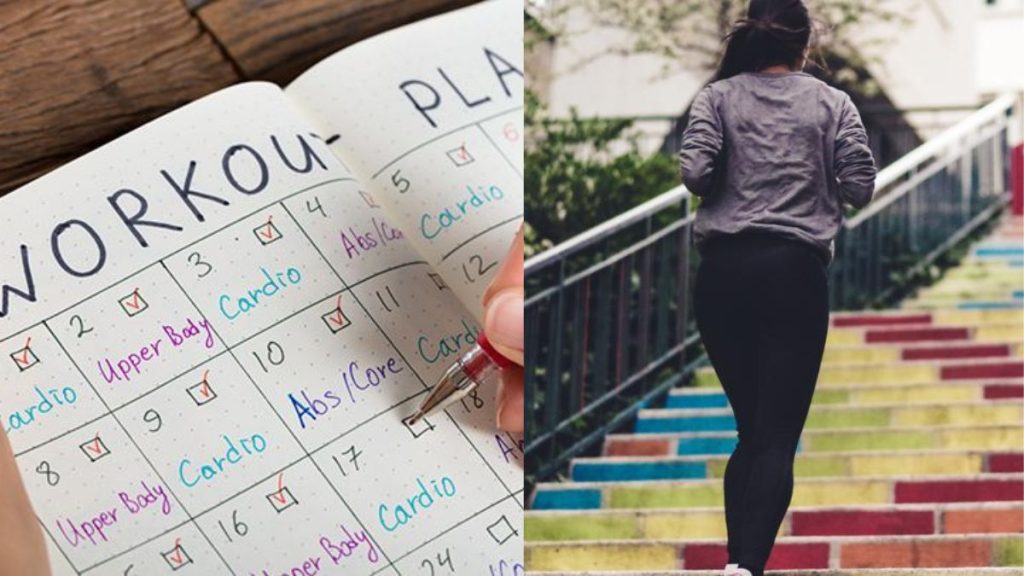 WORKOUT PLA
2 3 4 5 6
Cardio Upper Body Cardio Abs/Co Cardio
8 9 10 11 12
Upper Body Cardio Abs/Core Cardio
16 17 18
Upper Body Cardio Ab
24